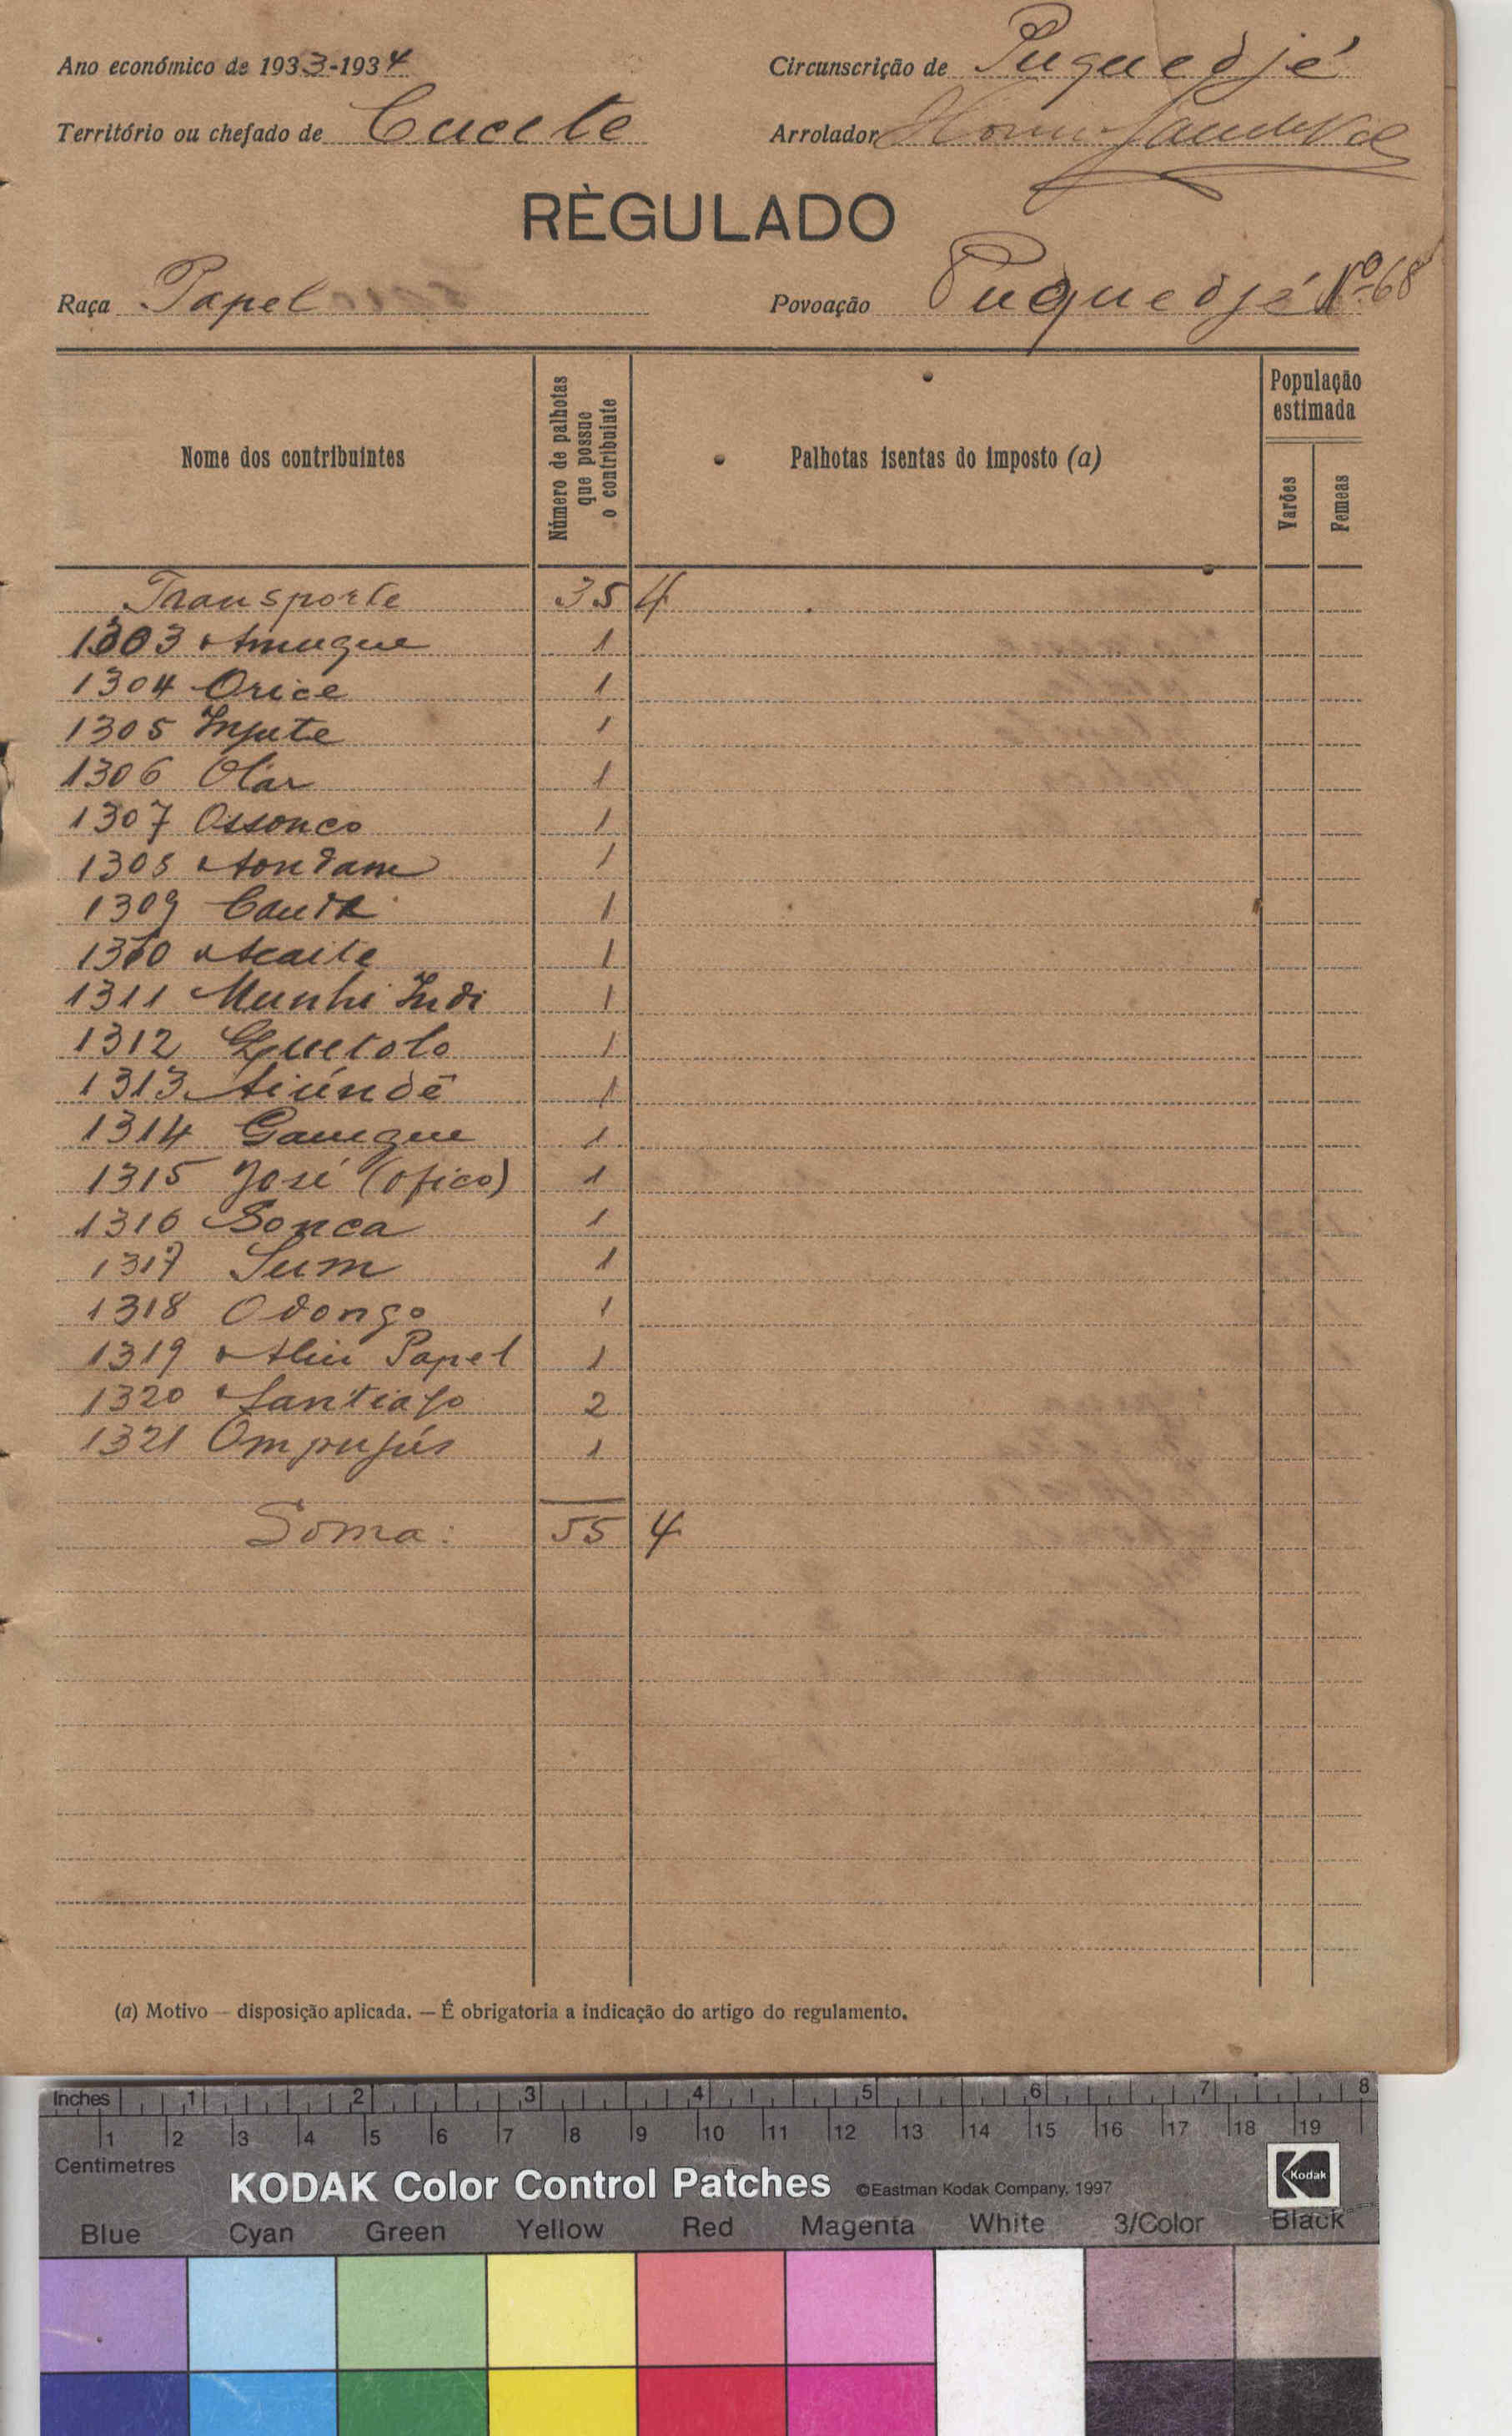 Ano económico de 1933-1934
Circunscrição de Puguedjé
Território ou chefado de Cucete
Arrolador
RÈGULADO
Raça Papel
Povoação Puguedjé Nº 68
Nome dos contribuintes
Número de palhotas que possue o contribuiate
Palhotas isentas do imposto (a)
População estimada
Varões
Femeas
Transporte 35 4
1303 Amugue 1
1304 Orice 1
1305 Injute 1
1306 Olar 1
1307 Ossonco 1
1308 Aondam 1
1309 1
1310 Acaile 1
1311 Munhi Indi 1
1312 Quetolo 1
1313 1
1314 1
1315 José (ofico) 1
1316 Sonca 1
1317 Sum 1
1318 Odongo 1
1319 Papel 1
1320 Santiago 2
1321 1
Soma: 55 4
(a) Motivo — disposição aplicada. — É obrigatoria a indicação do artigo do regulamento.
Inches 1 2 3 4 5 6 7 8
1 2 3 4 5 6 7 8 9 10 11 12 13 14 15 16 17 18 19
Centimetres
KODAK Color Control Patches ©Eastman Kodak Company, 1997 Kodak
Blue Cyan Green Yellow Red Magenta White 3/Color Black